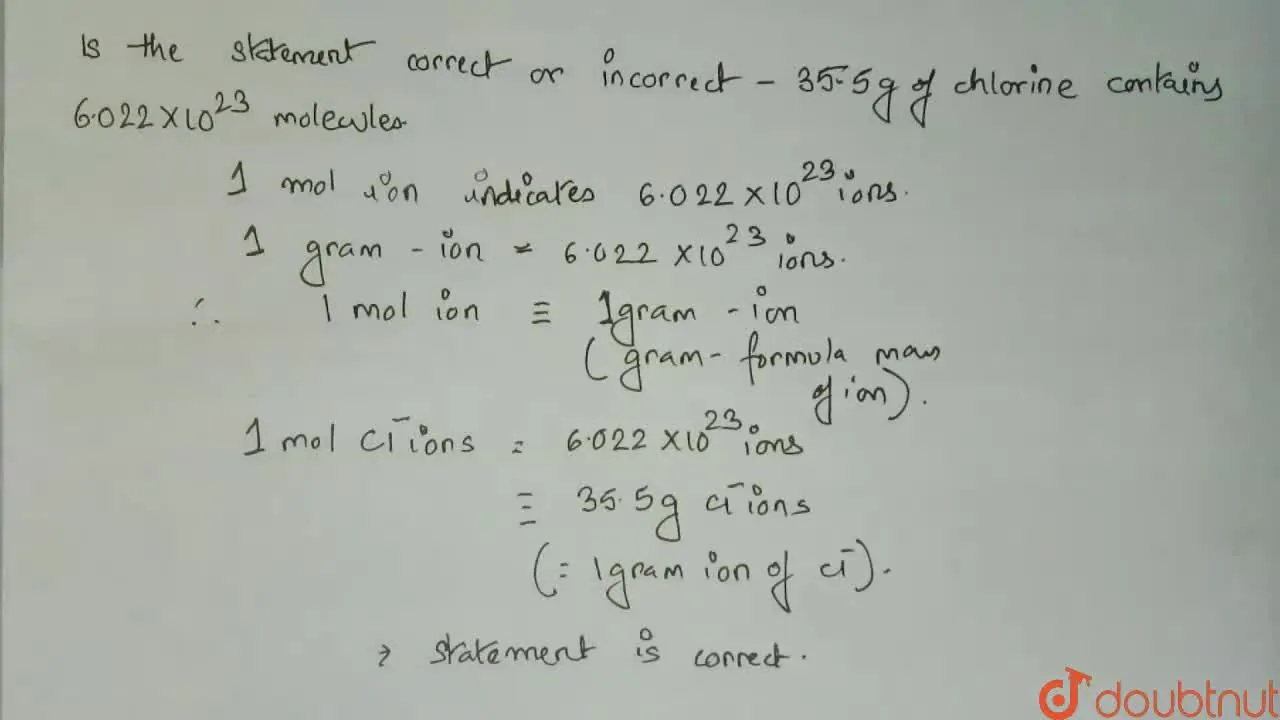 Is the statement correct or incorrect - 35.5g of chlorine contains
6.022 X 10²³ molecules.
1 mol ion indicates 6.022 X 10²³ ions.
1 gram - ion = 6.022 X 10²³ ions.
∴ 1 mol ion ≡ 1gram - ion
(gram- formula mass
of ion).
1 mol Cl⁻ ions = 6.022 X 10²³ ions
≡ 35.5g Cl⁻ ions
(= 1gram ion of Cl⁻).
> statement is correct.
doubtnut